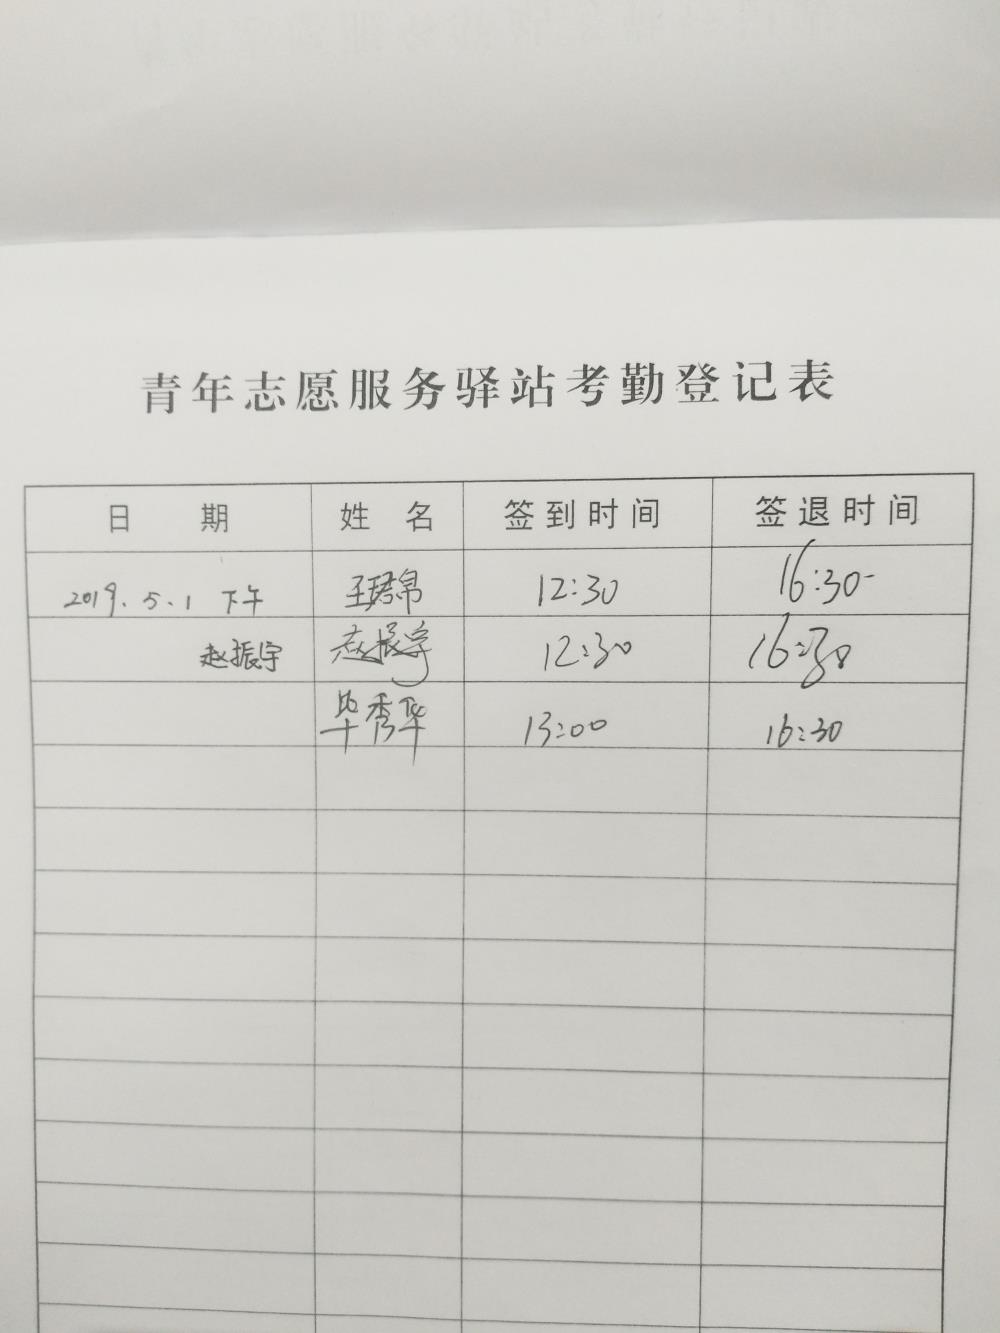 青年志愿服务驿站考勤登记表
日 期 姓 名 签到时间 签退时间
2019.5.1 下午 王珺帛 12:30 16:30
赵振宇 赵振宇 12:30 16:30
毕秀华 13:00 16:30